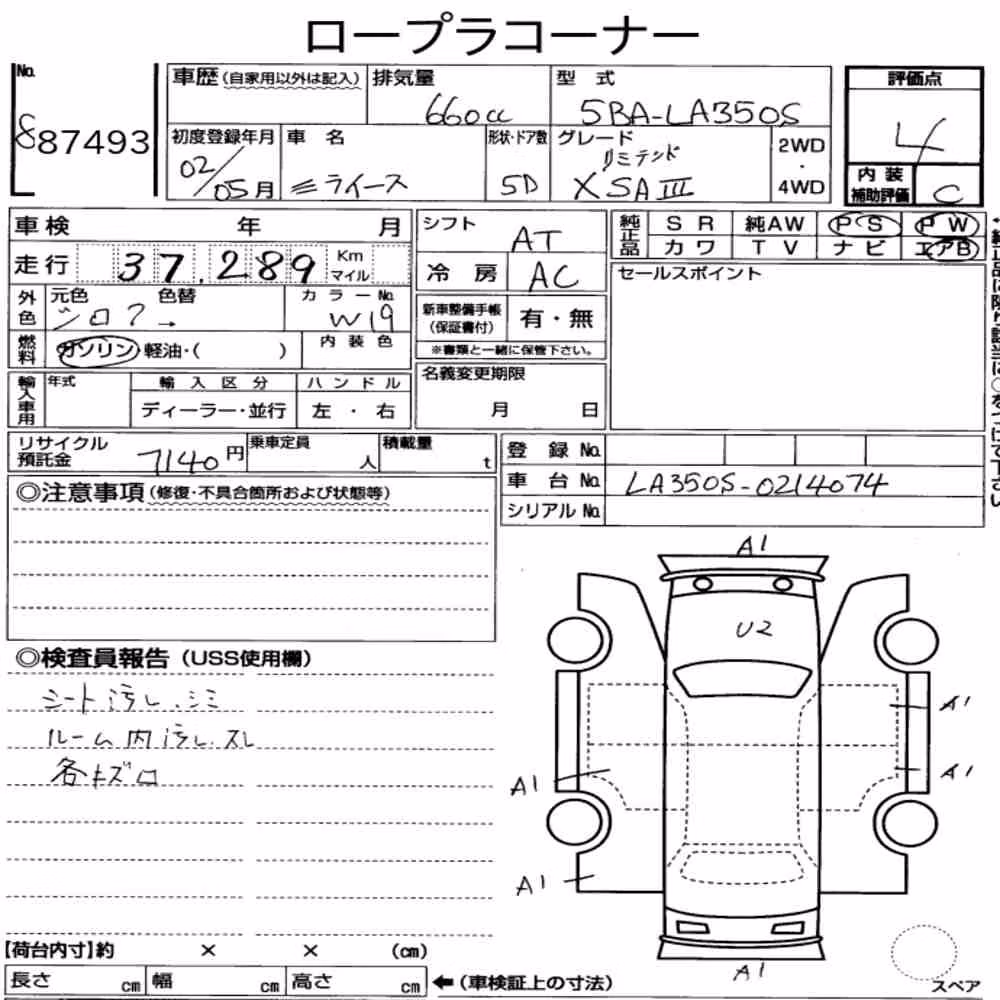 ロープラコーナー
No.
887493
車歴(自家用以外は記入)
排気量
660cc
型 式
5BA-LA350S
評価点
4
初度登録年月
02/05月
車 名
ミライース
形状・ドア数
5D
グレード
リミテッド
X SA III
2WD
・
4WD
内 装
補助評価
C
車検 年 月
走行 37,289 Km
マイル
シフト
AT
冷 房
AC
純正品
S R 純AW P S P W
カ ワ T V ナ ビ エアB
外色
元色 色替
シロ
カ ラ ー No.
W19
新車整備手帳
(保証書付)
有・無
※書類と一緒に保管下さい。
セールスポイント
燃料
ガソリン・軽油・( )
内 装 色
輸入車用
年式
輸 入 区 分
ディーラー・並行
ハ ン ド ル
左 ・ 右
名義変更期限
月 日
リサイクル
預託金
7140円
乗車定員
人
積載量
t
登 録 No.
車 台 No. LA350S-0214074
シリアル No.
◎注意事項(修復・不具合箇所および状態等)
◎検査員報告(USS使用欄)
シート汚レ、シミ
ルーム内汚レ、スレ
各キズ
A1
U2
A1
A1
A1
A1
A1
スペア
【荷台内寸】約 × × (cm)
長さ cm 幅 cm 高さ cm ←(車検証上の寸法)